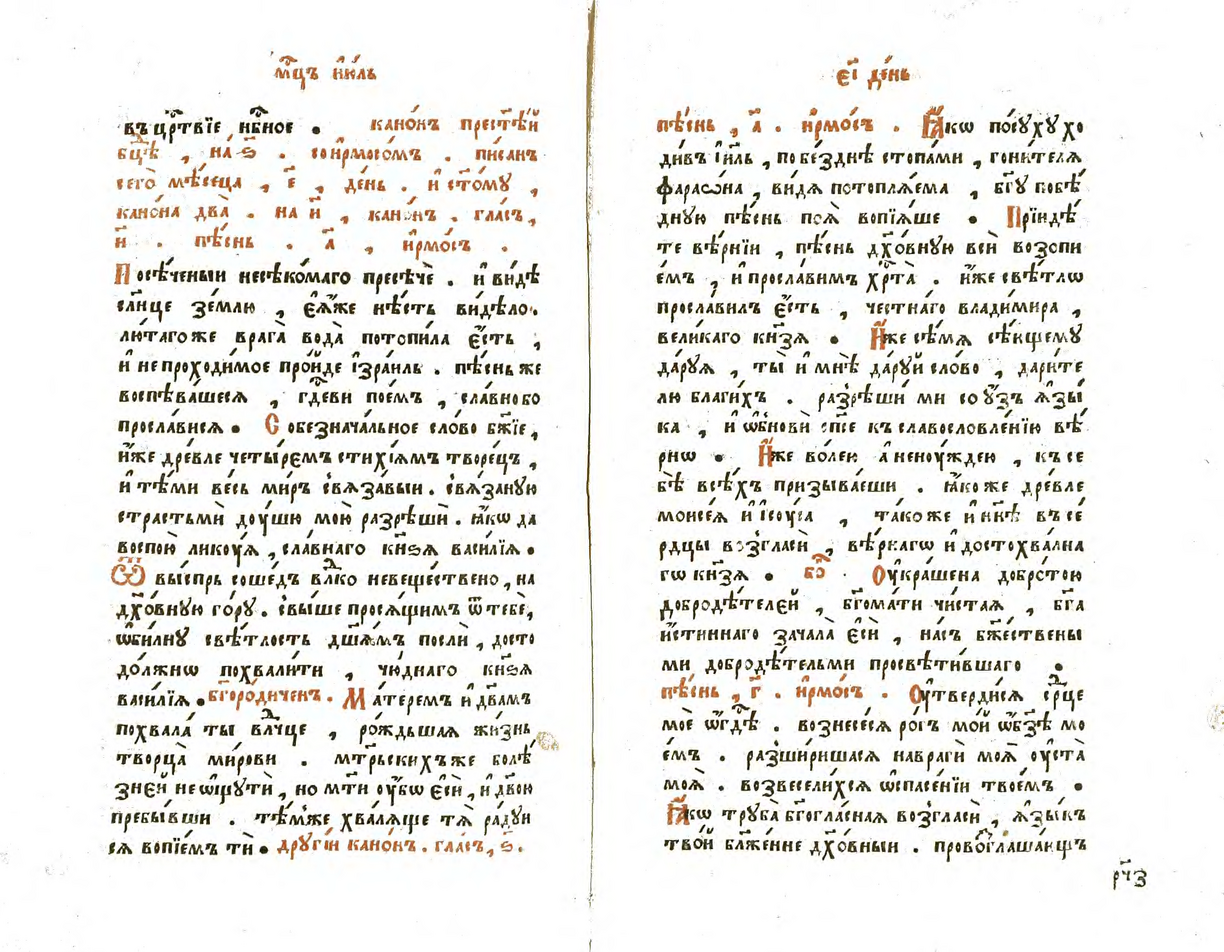 мⷭ҇цъ і҆ю́ль
въ црⷭ҇твїе нбⷭ҇ное . кано́нъ прест҃ѣ́й
бцⷣѣ , на ѕ҃ . со і҆рмосо́мъ . пи́санъ
сего̀ мѣ́сѧца , є҃ , де́нь . и҆ ст҃о́мꙋ ,
кано́на два̀ . на и҃ , кано́нъ . гла́съ ,
и҃ . пѣ́снь . а҃ , і҆рмо́съ .
Посѣ́ченыи несѣко́маго пресѣ́че . и҆ ви́дѣ
сл҃нце зе́млю , е҆ѧ́же нѣ́сть ви́дѣло .
лю́тагоже врага̀ вода̀ потопи́ла є҆́сть ,
и҆ непроходи́мое про́йде і҆зра́иль . пѣ́снь же
воспѣва́шесѧ , гдⷭ҇еви пое́мъ , сла́вно бо
просла́висѧ . Собезнача́льное сло́во бж҃їе ,
и҆́же дре́вле четы́ремъ стихі́ѧмъ творе́цъ ,
и҆ тѣ́ми ве́сь ми́ръ свѧза́выи . свѧ́заную
страстьмѝ до́ушю мою̀ разрѣшѝ . ꙗ҆́кѡ да
воспою̀ лику́ѧ , сла́внаго кн҃зѧ васи́лїѧ .
Ѿ вы́спрь соше́дъ влⷣко невеще́ствено , на
дх҃о́вную го́ру . свы́ше просѧ́щимъ ѿ тебѐ ,
ѡ҆би́лнꙋ свѣ́тлость дш҃а́мъ послѝ , досто
до́лжнѡ похвали́ти , чю́днаго кн҃зѧ
васи́лїѧ . бг҃оро́диченъ . Ма́теремъ и҆ дв҃амъ
похвала̀ ты влⷣчце , ро́ждьшаѧ жи́знь
творца̀ ми́рови . мтⷬ҇рьскихъже болѣ́
зней не ѡ҆щути́ , но мт҃и ᲂу҆́бѡ є҆сѝ , и҆ двою
пребы́вши . тѣ́мже хва́лѧще тѧ̀ ра́дꙋи
сѧ вопїе́мъ тѝ . дрꙋгі́и кано́нъ . гла́съ , ѕ҃ .
є҃і де́нь
пѣ́снь , а҃ . і҆рмо́съ . Ꙗ҆́кѡ по сꙋ́хꙋ хо
ди́въ і҆и҃ль , по бе́зднѣ стопа́ми , гони́телѧ
фараѡ́на , ви́дѧ потоплѧ́ема , бг҃ꙋ побѣ́
днꙋю пѣ́снь поѧ̀ вопїѧ́ше . Прїидѣ́
те вѣ́рнїи , пѣ́снь дх҃о́внꙋю всѝ воспи
е́мъ , и҆ просла́вимъ хрⷭ҇та̀ . и҆́же свѣ́тлѡ
просла́вилъ є҆́сть , че́стнаго влади́мира ,
вели́каго кн҃зѧ . И҆́же сѣ́мѧ сѣ́ющемꙋ
да́рꙋѧ , ты̀ и҆ мнѣ̀ да́рꙋй сло́во , дарите
лю благи́хъ . разрѣши́ ми со ᲂу҆́зъ ѧ҆зы́
ка , и҆ ѡ҆бновѝ сп҃се къ славосло́вленїю вѣ́
рнѡ . И҆́же во́лею а҆ не ноу́ждею , къ се
бѣ̀ всѣ́хъ призыва́еши . ꙗ҆́ко же дре́вле
моисе́ѧ и҆ і҆соу́са , тако́же и҆ нн҃ѣ въ се́
рдцы возгласѝ , вѣ́рнагѡ и҆ достохва́лна
гѡ кн҃зѧ . бо҃ . Оу҆кра́шена добро́тою
добродѣ́телей , бг҃ома́ти чи́стаѧ , бг҃а
и҆́стиннаго зачала̀ є҆сѝ , на́съ бж҃ествены
ми добродѣ́тельми просвѣти́вшаго .
пѣ́снь , г҃ . і҆рмо́съ . Оу҆тверди́сѧ срⷣце
моѐ ѡ҆ гдⷭ҇ѣ . вознесе́сѧ ро́гъ мо́й ѡ҆ бз҃ѣ мо
е́мъ . разшири́шасѧ на врагѝ моѧ̀ ᲂу҆ста̀
моѧ̀ . возвесели́хсѧ ѡ҆ спасе́нїи твое́мъ .
Ꙗ҆́кѡ трꙋба̀ бг҃огла́снаѧ возгласѝ , ѧ҆зы́къ
тво́й блаже́нне дх҃о́вныи . провоглаша́ющъ
рч҃з